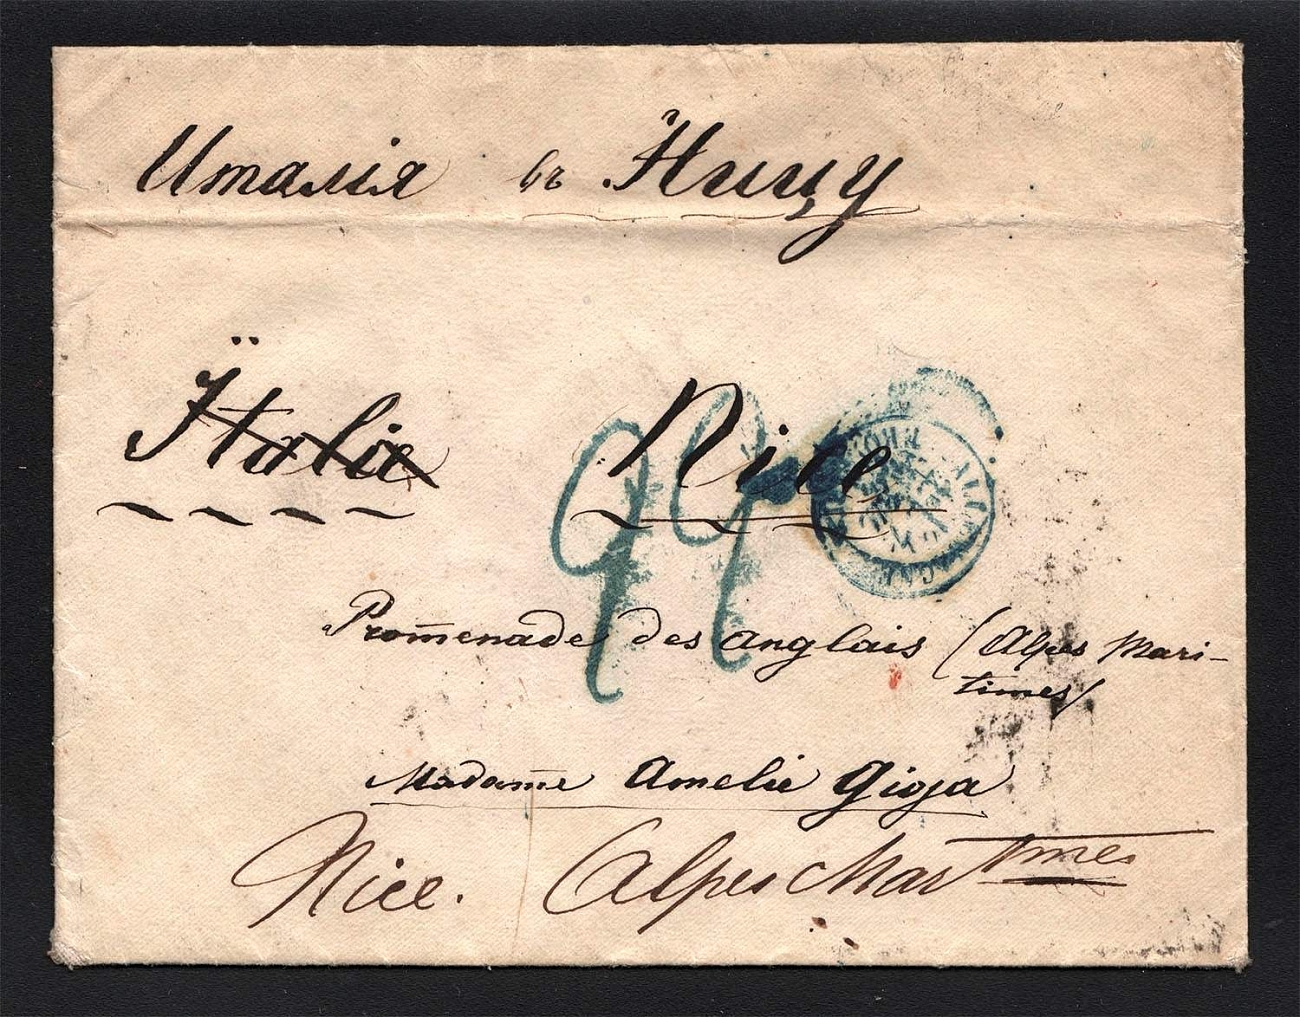 Италія въ Ниццу
Italie Nice
Promenade des anglais (Alpes Mari-
times)
Madame Amelie Gioja
Nice. Alpes Martimes